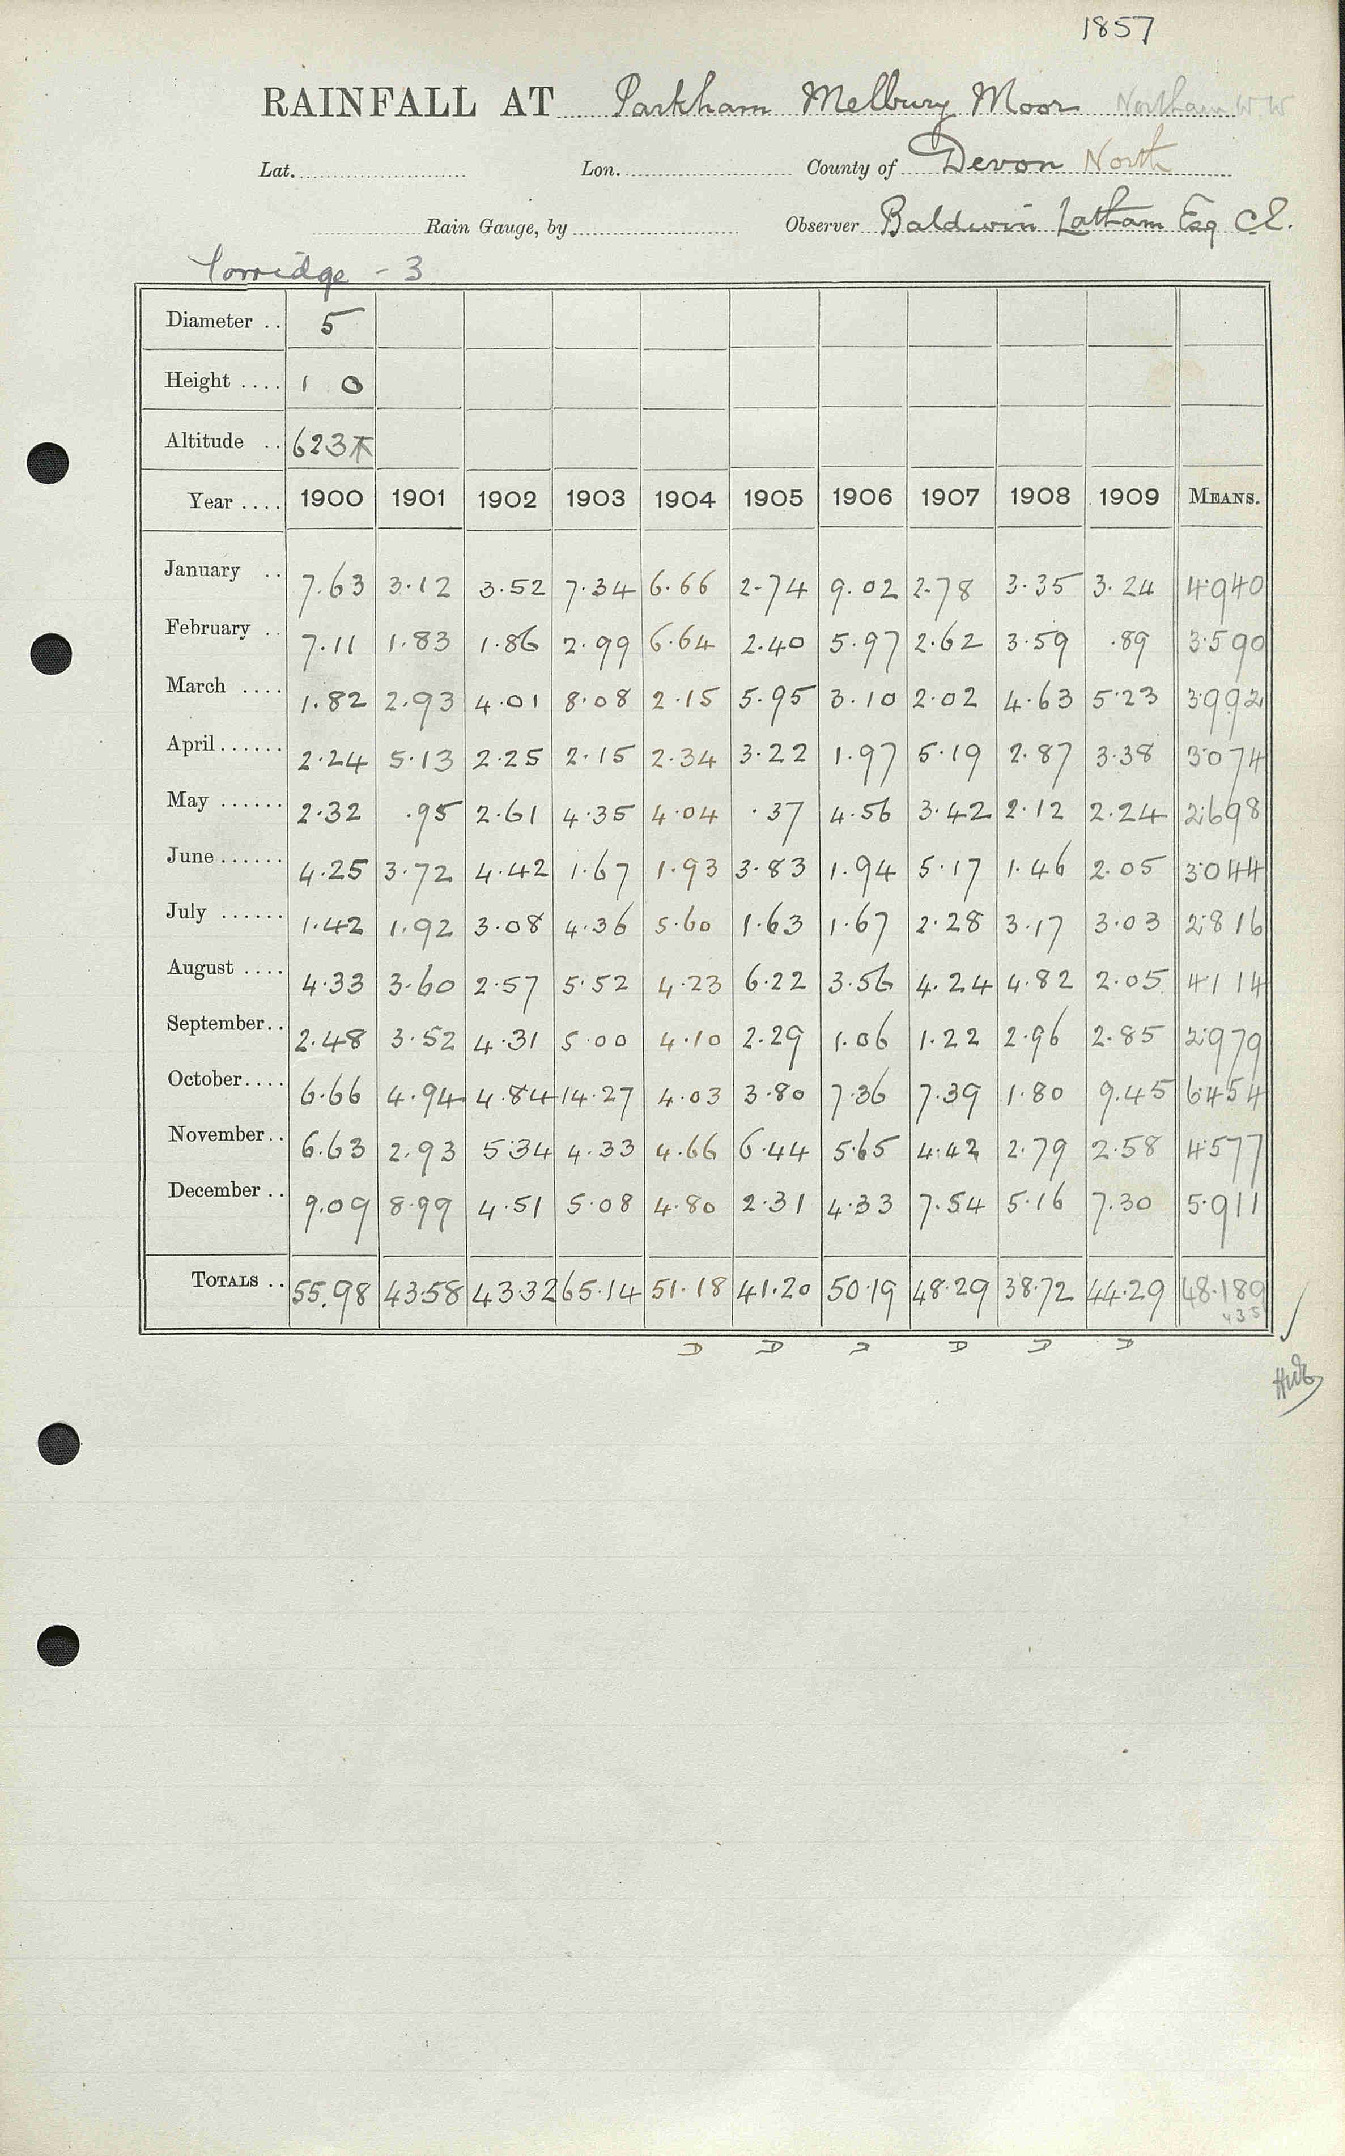 1857
RAINFALL AT Parkham Melbury Moor Northam W.W
Lat. Lon. County of Devon North
Rain Gauge, by Observer Baldwin Latham Esq C.E.
Torridge - 3
Diameter .. 5
Height .... 1 0
Altitude .. 623
Year .... 1900 1901 1902 1903 1904 1905 1906 1907 1908 1909 MEANS.
January .. 7.63 3.12 3.52 7.34 6.66 2.74 9.02 2.78 3.35 3.24 4.940
February .. 7.11 1.83 1.86 2.99 6.64 2.40 5.97 2.62 3.59 .89 3.590
March .... 1.82 2.93 4.01 8.08 2.15 5.95 3.10 2.02 4.63 5.23 3.992
April...... 2.24 5.13 2.25 2.15 2.34 3.22 1.97 5.19 2.87 3.38 3.074
May ...... 2.32 .95 2.61 4.35 4.04 .37 4.56 3.42 2.12 2.24 2.698
June...... 4.25 3.72 4.42 1.67 1.93 3.83 1.94 5.17 1.46 2.05 3.044
July ...... 1.42 1.92 3.08 4.36 5.60 1.63 1.67 2.28 3.17 3.03 2.816
August .... 4.33 3.60 2.57 5.52 4.23 6.22 3.56 4.24 4.82 2.05 4.114
September.. 2.48 3.52 4.31 5.00 4.10 2.29 1.06 1.22 2.96 2.85 2.979
October.... 6.66 4.94 4.84 14.27 4.03 3.80 7.36 7.39 1.80 9.45 6.454
November.. 6.63 2.93 5.34 4.33 4.66 6.44 5.65 4.42 2.79 2.58 4.577
December .. 9.09 8.99 4.51 5.08 4.80 2.31 4.33 7.54 5.16 7.30 5.911
TOTALS .. 55.98 43.58 43.32 65.14 51.18 41.20 50.19 48.29 38.72 44.29 48.189
D D D D D D